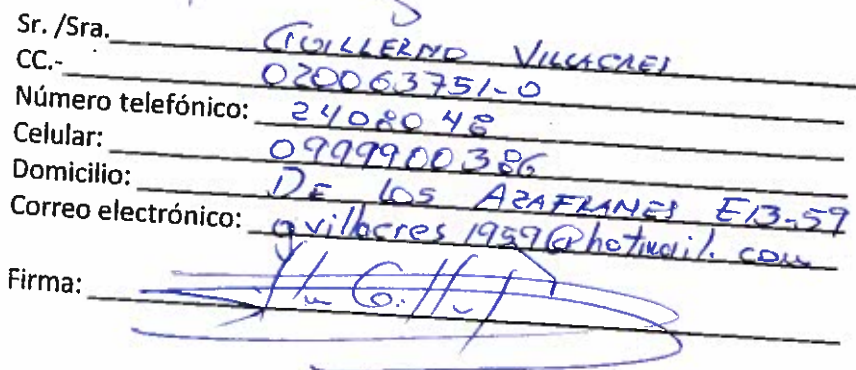 Sr. /Sra. GUILLERMO VILLACRES
CC.- 020063751-0
Número telefónico: 2408048
Celular: 0999900386
Domicilio: DE LOS AZAFRANES E13-59
Correo electrónico: gvillacres1959@hotmail.com
Firma: